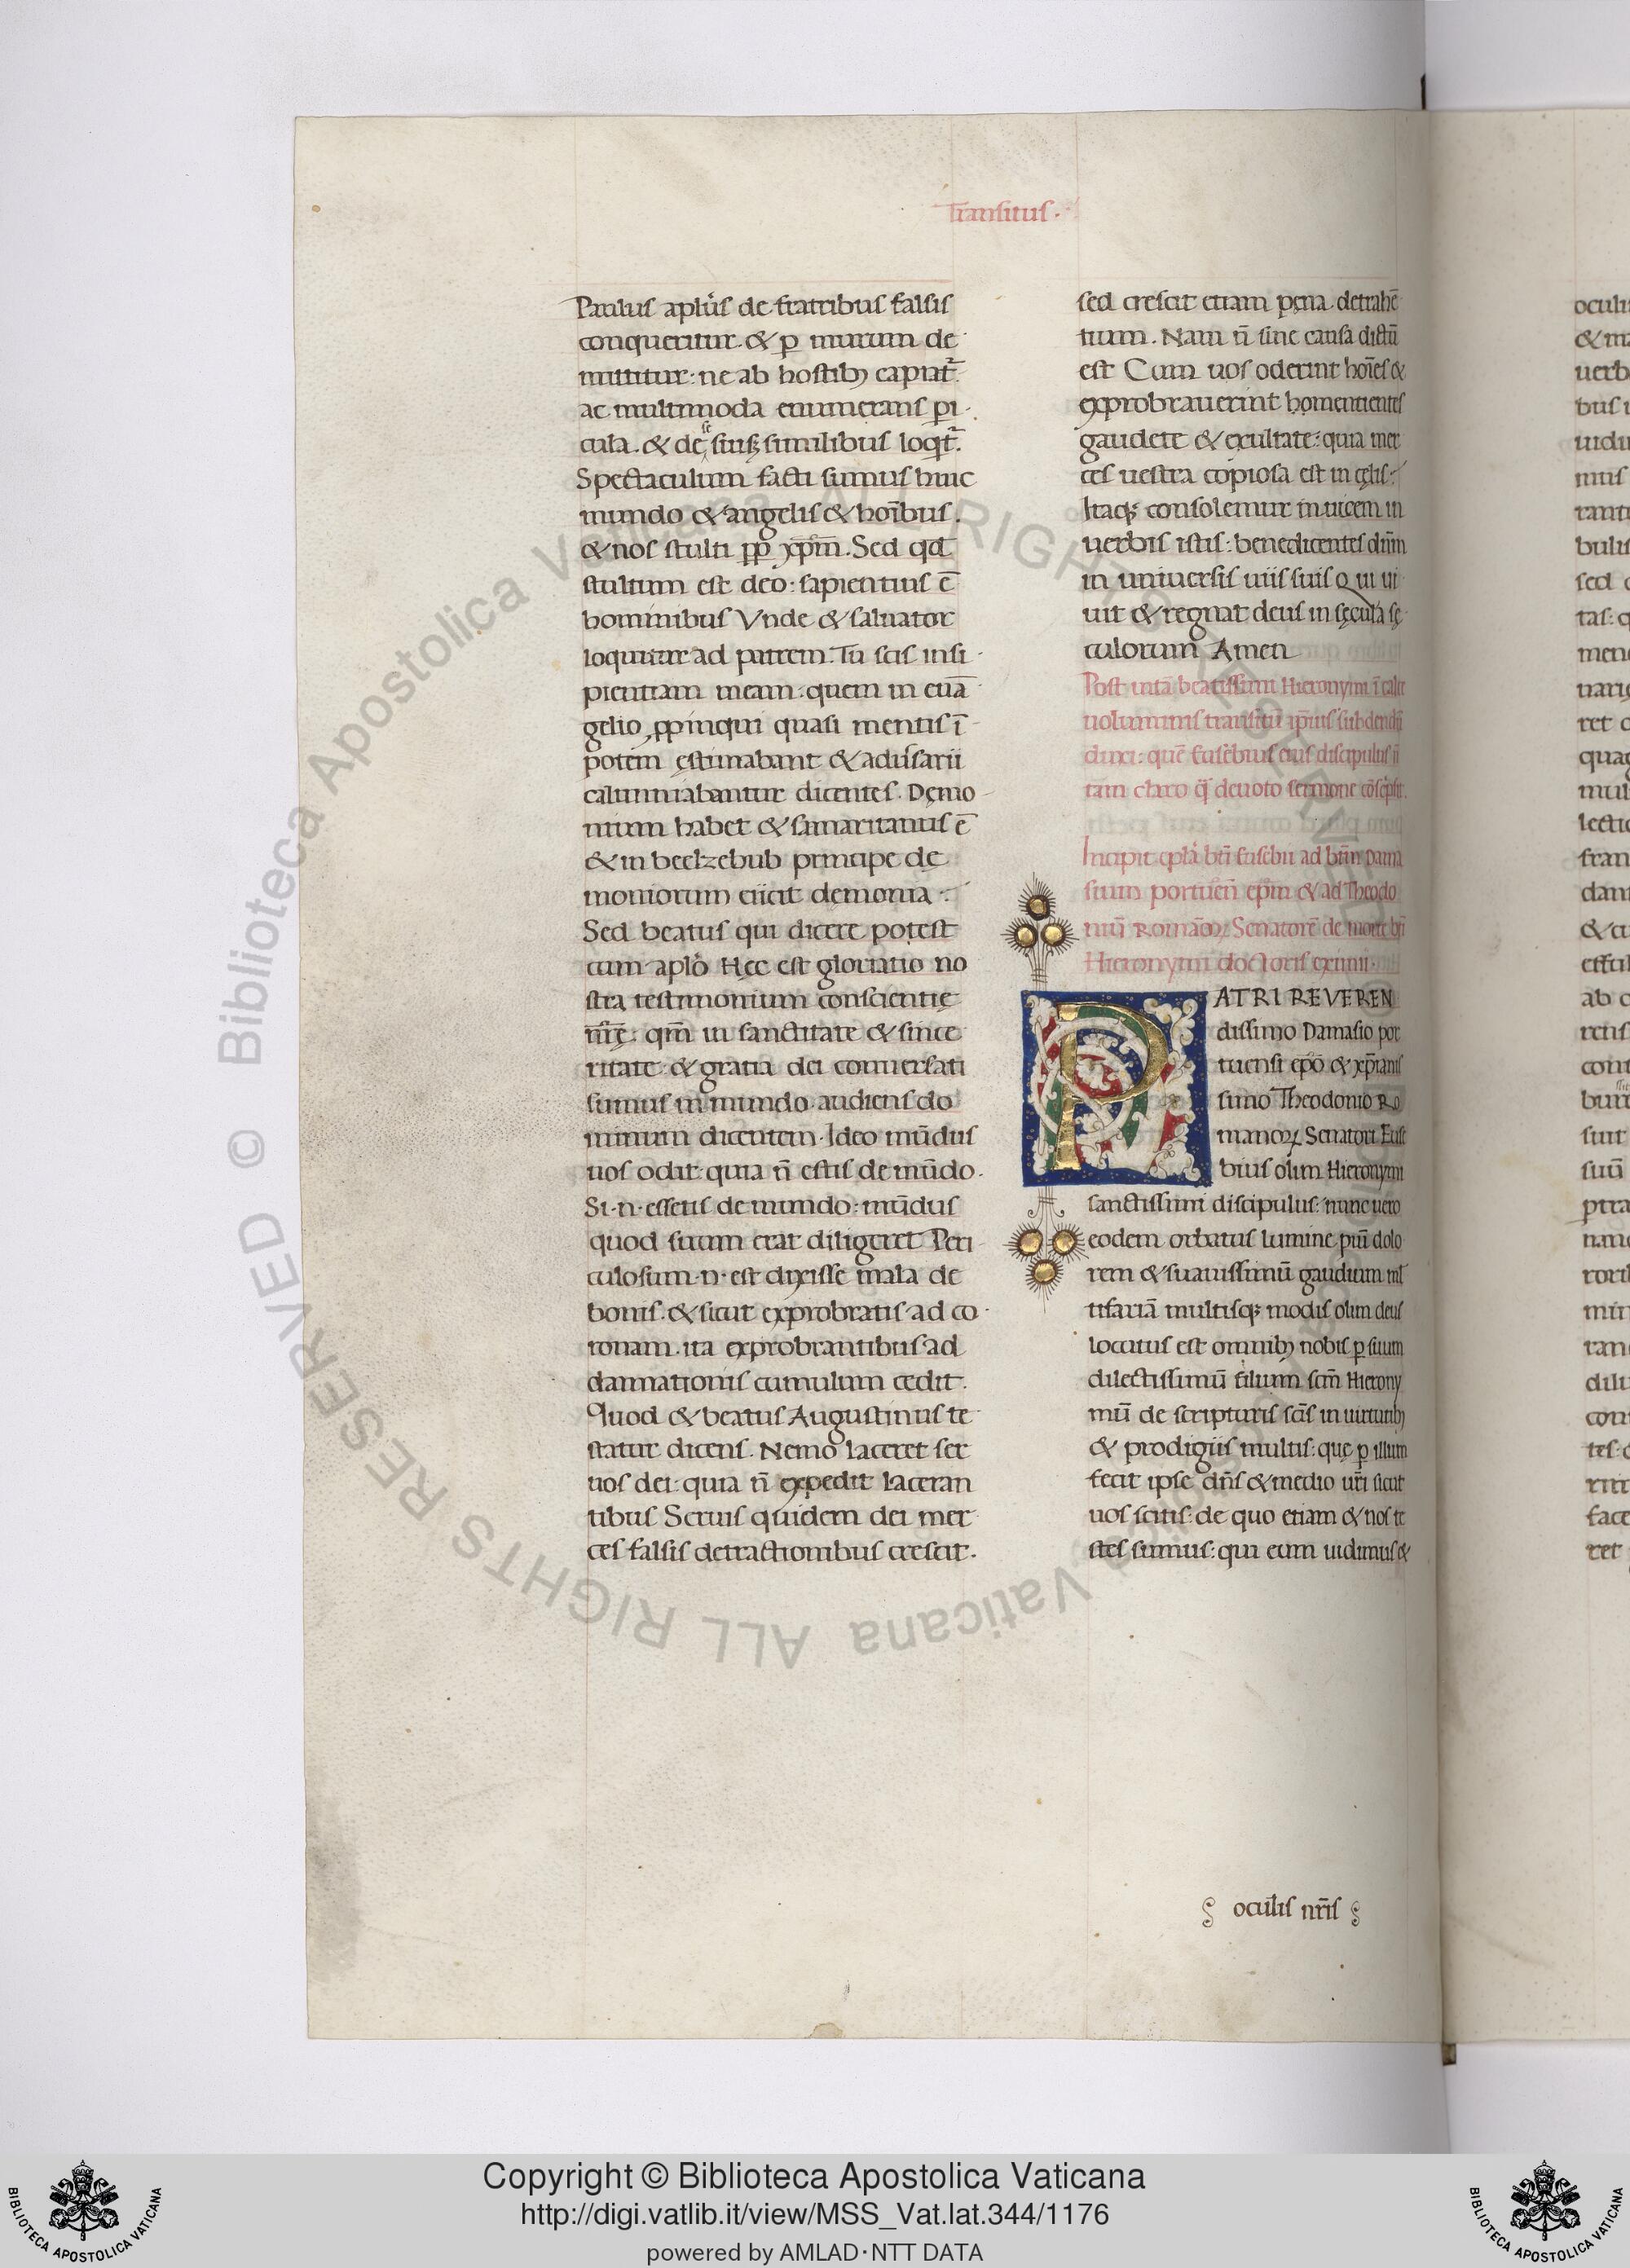 Transitus.
Paulus aplūs de fratribus falsis
conqueritur. & ꝑ murum de
mittitur: ne ab hostibȝ capiat᷑.
ac multimoda enumerans ꝑi
cula. & de se suisqȝ similibus loqt᷑.
Spectaculum facti sumus huic
mundo & angelis & hoībus.
& nos stulti ꝓp xp̄m. Sed qd̄
stultum est deo: sapientius ē
hominibus Vnde & saluator
loquitur ad patrem. Tu scis insi
pientiam meam: quem in euā
gelio ꝓpinqui quasi mentis ī
potem ęstimabant & adu͛sarii
calumniabantur dicentes. Dęmo
nium habet & samaritanus ē
& in beelzebub principe de
moniorum eiicit demonia.
Sed beatus qui dicere potest
cum aplō Hęc est gloriatio no
stra testimonium conscientię
nr̄ę: qm̄ in sanctitate & since
ritate & gratia dei conuersati
sumus in mundo. audiens do
minum dicentem. Ideo mūdus
uos odit: quia n̄ estis de mūdo.
Si.n. essetis de mundo: mūdus
quod suum erat diligeret Peri
culosum.n. est dixisse mala de
bonis. & sicut exprobratis ad co
ronam. ita exprobrantibus ad
damnationis cumulum cedit.
Quod & beatus Augustinus te
statur dicens. Nemo laceret ser
uos dei: quia n̄ expedit laceran
tibus Seruis quidem dei mer
ces falsis detractionibus crescit.
sed crescit etiam pęna detrahē
tium. Nam n̄ sine causa dictū
est Cum uos oderint hoīes &
exprobrauerint homentientes
gaudete & exultate: quia mer
ces uestra copiosa est in cęlis:
Itaqȝ consolemur inuicem in
uerbis istis: benedicentes dn̄m
in uniuersis uiis suis Qui ui
uit & regnat deus in sęcula sę
culorum Amen
Post uitā beatissimi Hieronymi ī calce
uoluminis transitū ip̄ius subdendū
duxi: quē Eusebius eius discipulus ñ
tam claro q̄ deuoto sermone cōscͥpsit.
Incipit epl̄a bt̄i Eusebii ad bt̄m Dama
sium portuen̄ ep̄m & ad Theodo
niū Romāoꝝ Senatorē de morte bt̄i
Hieronymi doctoris eximii.
PATRI REVEREN
dissimo Damasio por
tuensi ep̄o & xp̄ianis
simo Theodonio Ro
manoꝝ Senatori Euse
bius olim Hieronymi
sanctissimi discipulus: nunc uero
eodem orbatus lumine piū dolo
rem & suauissimū gaudium mul
tifariā multisqȝ modis olim deus
locutus est omnibȝ nobis ꝑ suum
dilectissimū filium scm̄ Hierony
mū de scripturis scīs in uirtutibȝ
& prodigiis multis: quę ꝑ illum
fecit ipse dn̄s & medio ur̄i sicut
uos scitis: de quo etiam & nos te
stes sumus: qui eum uidimus &
oculis nr̄is
Copyright © Biblioteca Apostolica Vaticana
http://digi.vatlib.it/view/MSS_Vat.lat.344/1176
powered by AMLAD·NTT DATA
BIBLIOTECA APOSTOLICA VATICANA
BIBLIOTECA APOSTOLICA VATICANA
© Biblioteca Apostolica Vaticana ALL RIGHTS RESERVED